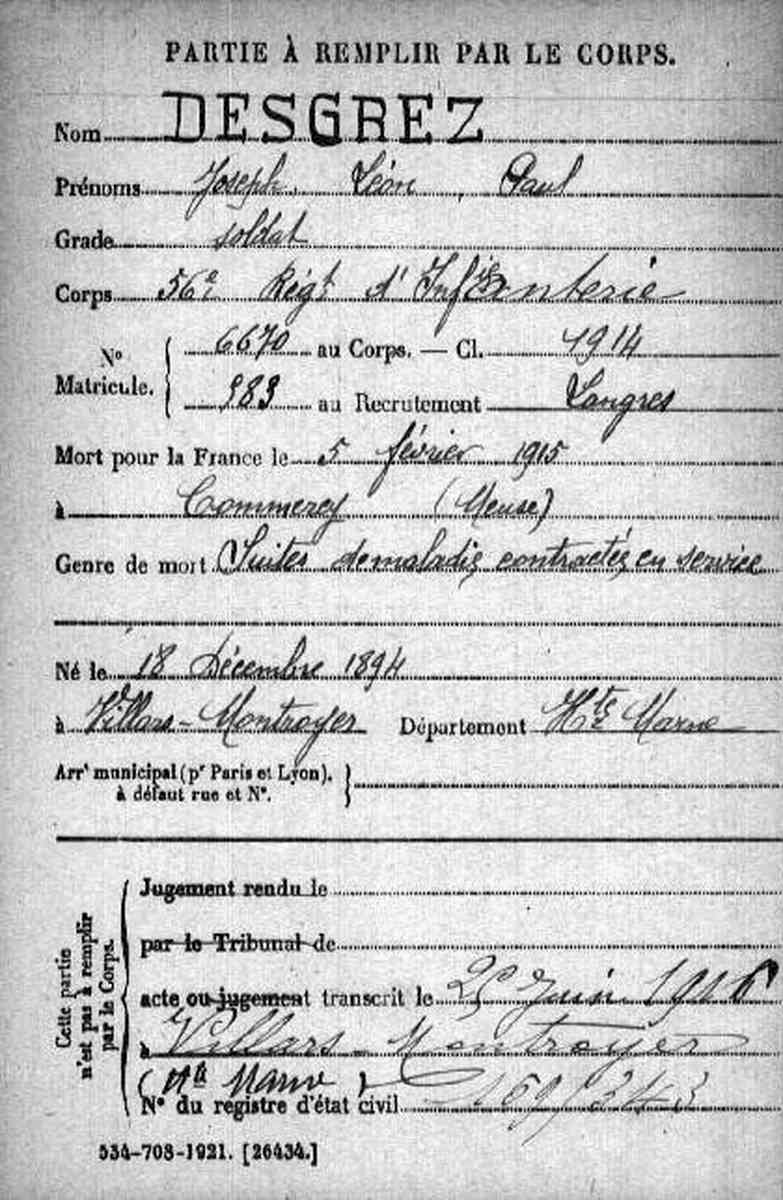 PARTIE À REMPLIR PAR LE CORPS.
Nom DESGREZ
Prénoms Joseph, Léon, Paul
Grade soldat
Corps 56e Régt d'Infanterie
No Matricule. 6670 au Corps. — Cl. 1914
983 au Recrutement Langres
Mort pour la France le 5 février 1915
à Commercy (Meuse)
Genre de mort Suites de maladie contractée en service
Né le 18 Décembre 1894
à Villars-Montroyer Département Hte Marne
Arrt municipal (pr Paris et Lyon),
à défaut rue et No.
Cette partie n'est pas à remplir par le Corps.
Jugement rendu le
par le Tribunal de
acte ou jugement transcrit le Juin
à Villars-Montroyer
(Hte Marne)
No du registre d'état civil 169/343
534-708-1921. [26434.]